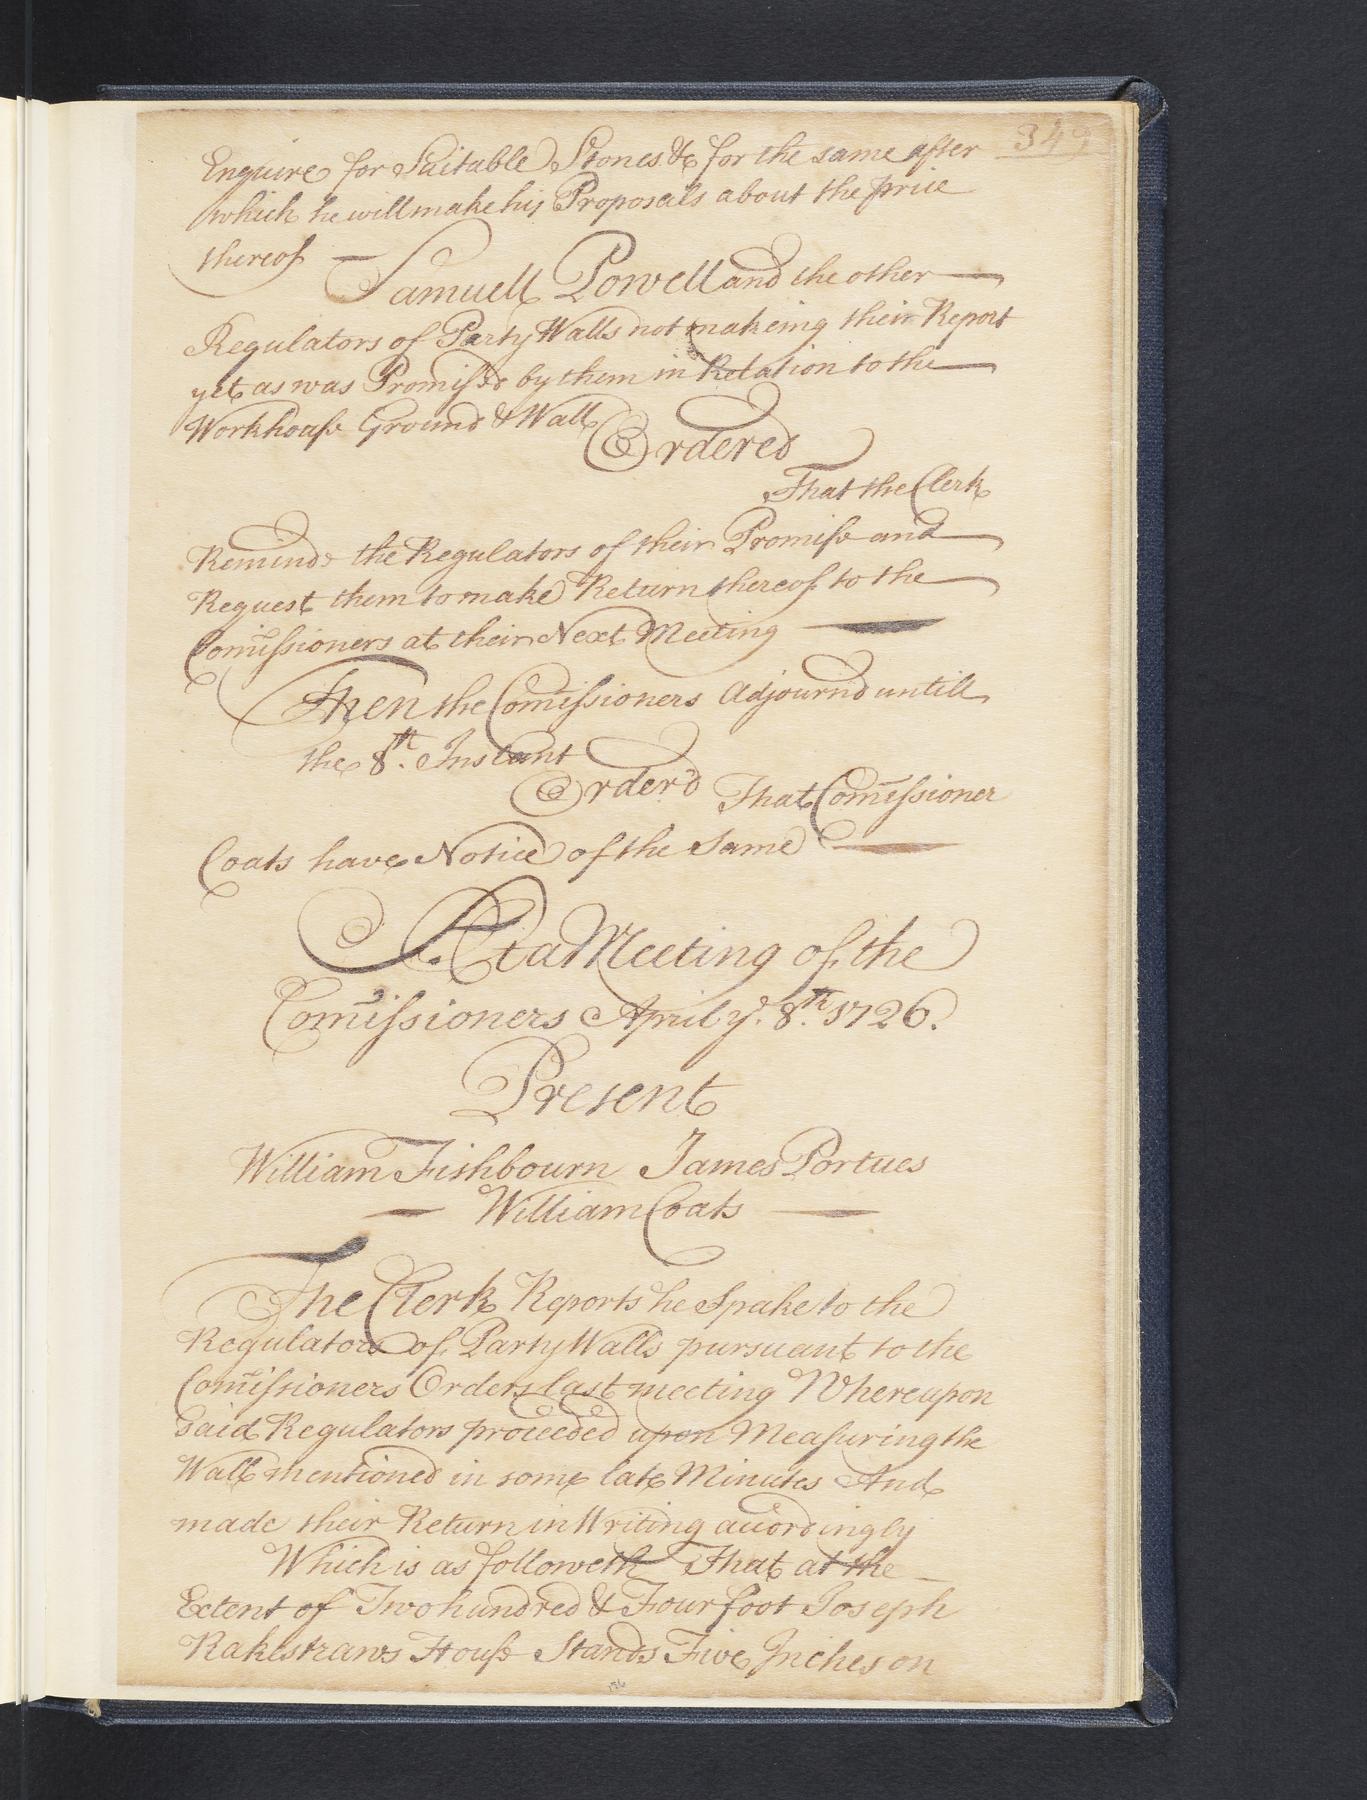 349
Enquire for Suitable Stones &c for the same after
which he will make his Proposals about the price
thereof —
Samuell Powell and the other —
Regulators of Party Walls not makeing their Report
yet as was Promissd by them in Relation to the —
Workhouse Ground & Wall Ordered
That the Clerk
Remind the Regulators of their Promise and —
Request them to make Return thereof to the —
Comissioners at their Next Meeting —
Then the Comissioners Adjournd untill
the 8th. Instant
Order'd That Comissioner
Coats have Notice of the Same —
At a Meeting of the
Comissioners April ye. 8th. 1726.
Present
William Fishbourn James Portues
— William Coats —
The Clerk Reports he Spake to the
Regulators of Party Walls pursuant to the
Comissioners Orders last meeting Whereupon
said Regulators proceeded upon Measuring the
Wall mentioned in some late Minutes And
made their Return in Writing accordingly
Which is as followeth That at the —
Extent of Two hundred & Four foot Joseph
Rakestraws House Stands Five Inches on